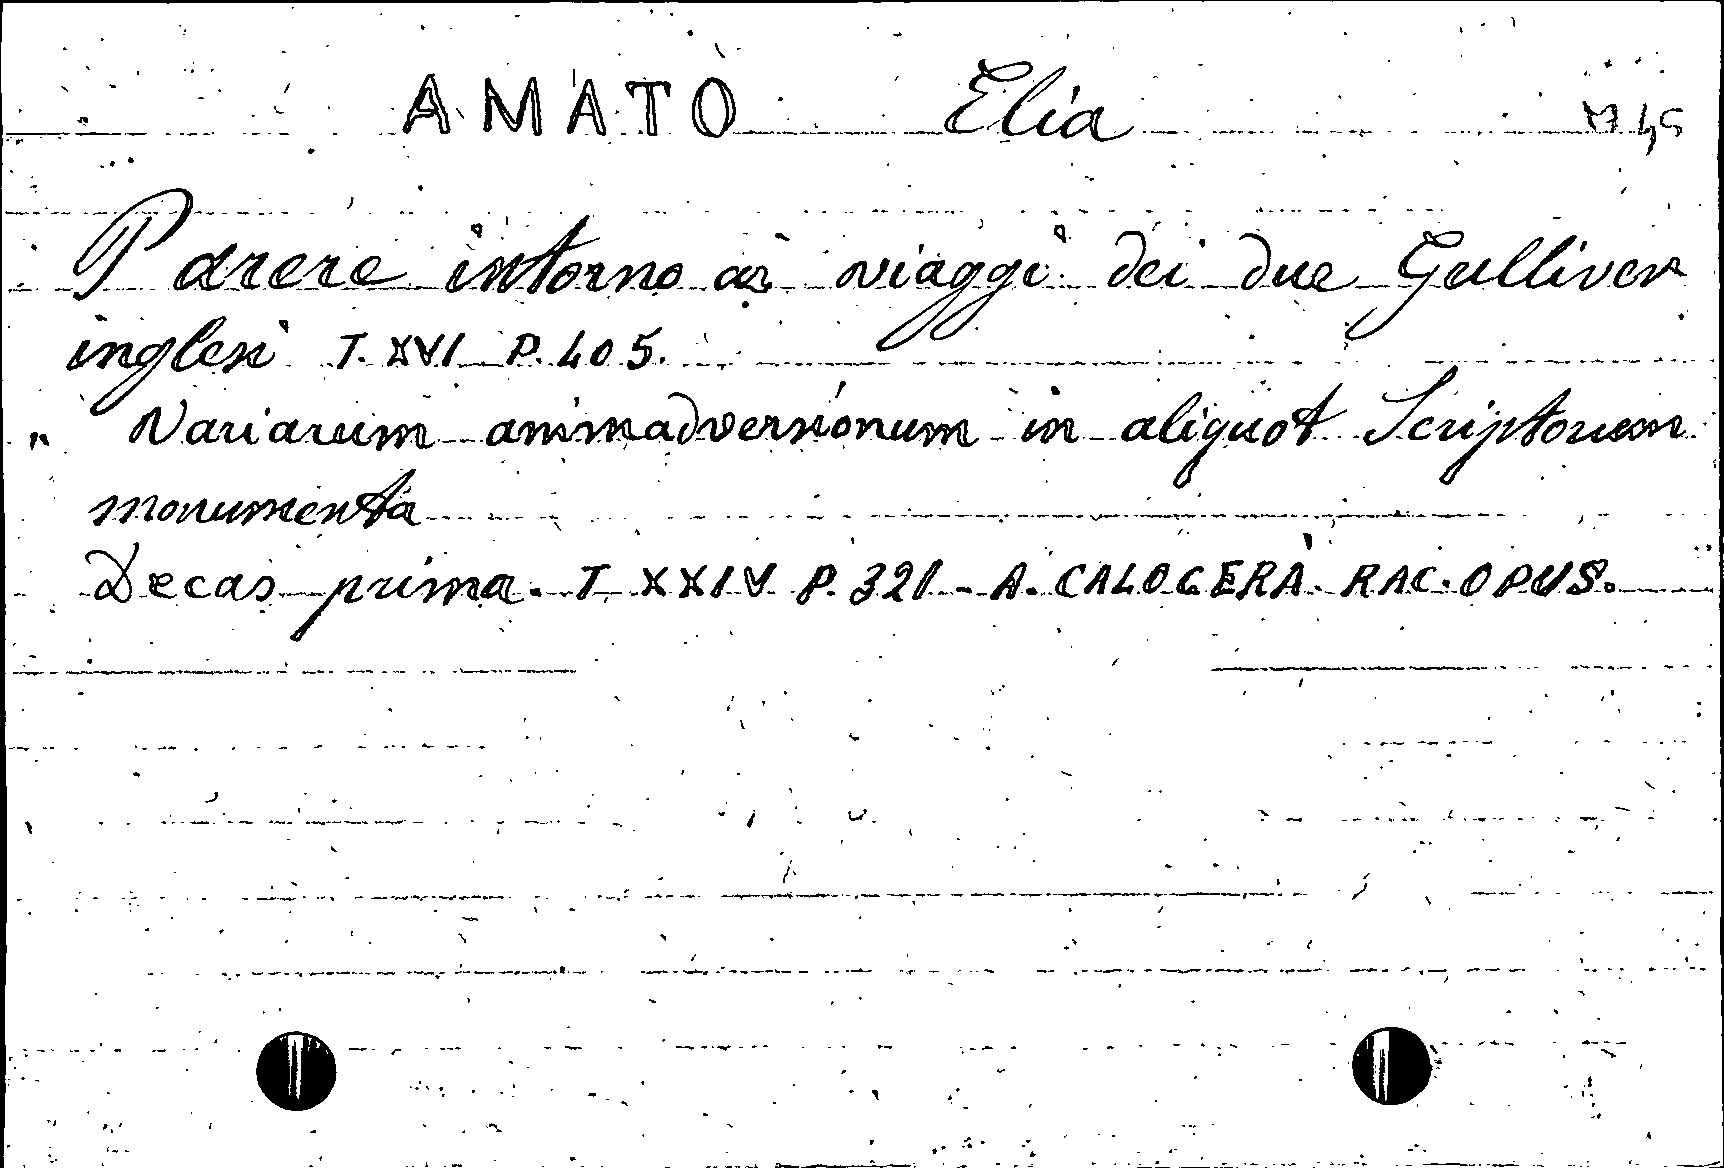 AMATO Elia M 45
Parere intorno ai viaggi dei due Gulliver
inglesi T. XVI P. 405.
" Variarum animadversionum in aliquot Scriptorum
monumenta
Decas prima. T XXIV P. 321 - A. CALOGERÀ RAC. OPUS.